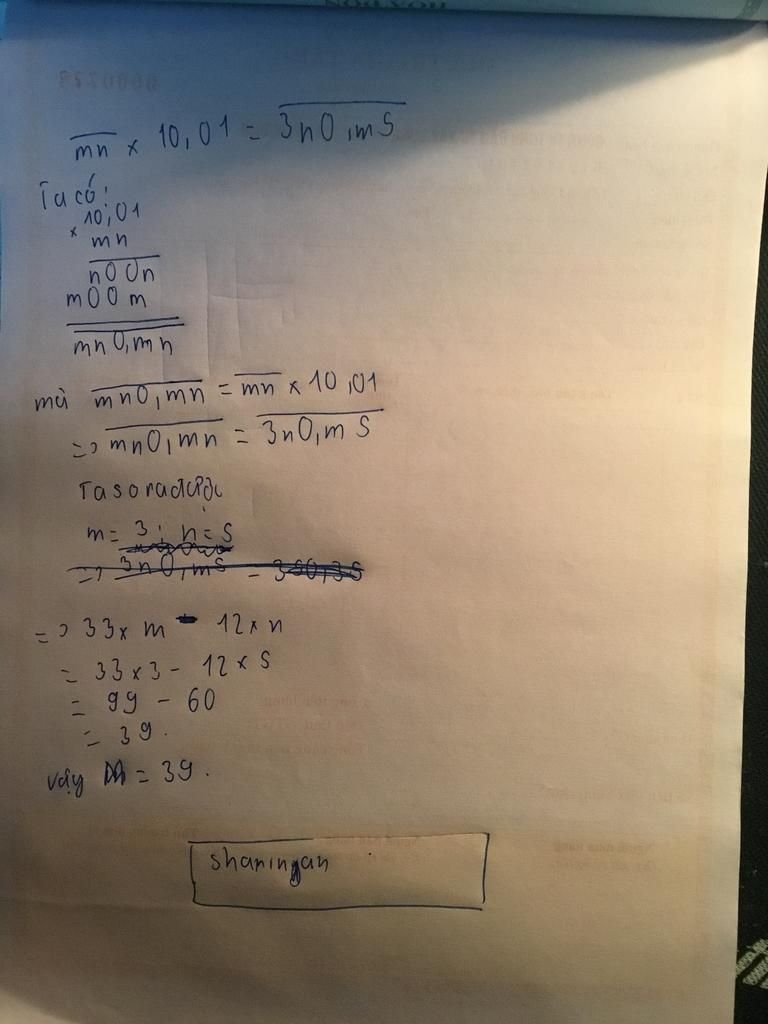 mn × 10,01 = 3n0,m5
Ta có:
10,01
× mn
n00n
m00m
mn0,mn
mà mn0,mn = mn × 10,01
=> mn0,mn = 3n0,m5
m = 3; n = 5
=> 3n0,m5 = 350,35
=> 33 × m - 12 × n
= 33 × 3 - 12 × 5
= 99 - 60
= 39.
vậy M = 39.
sharingan